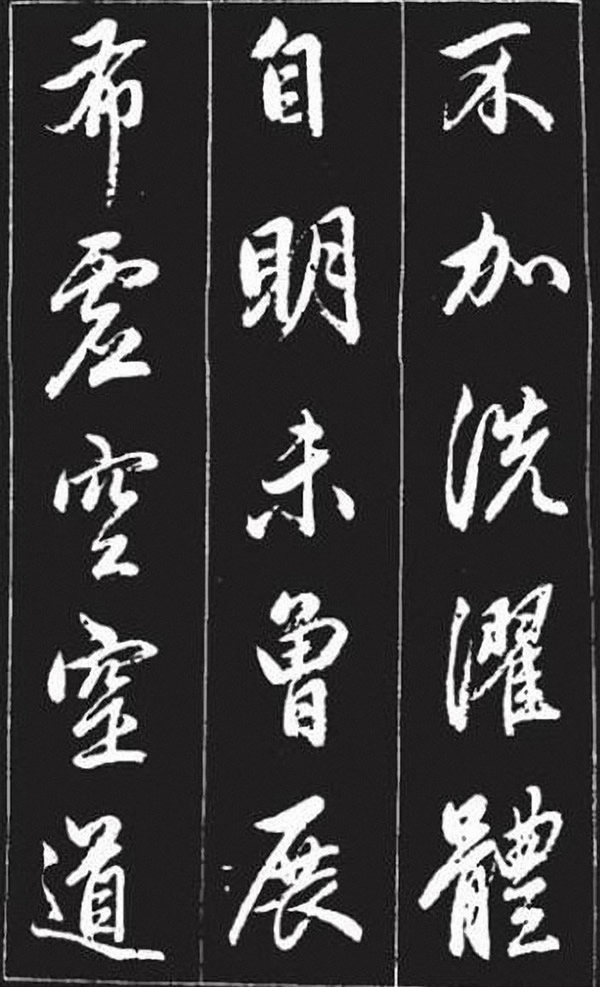 不加洗濯體
自明未曾展
希虛空窒道